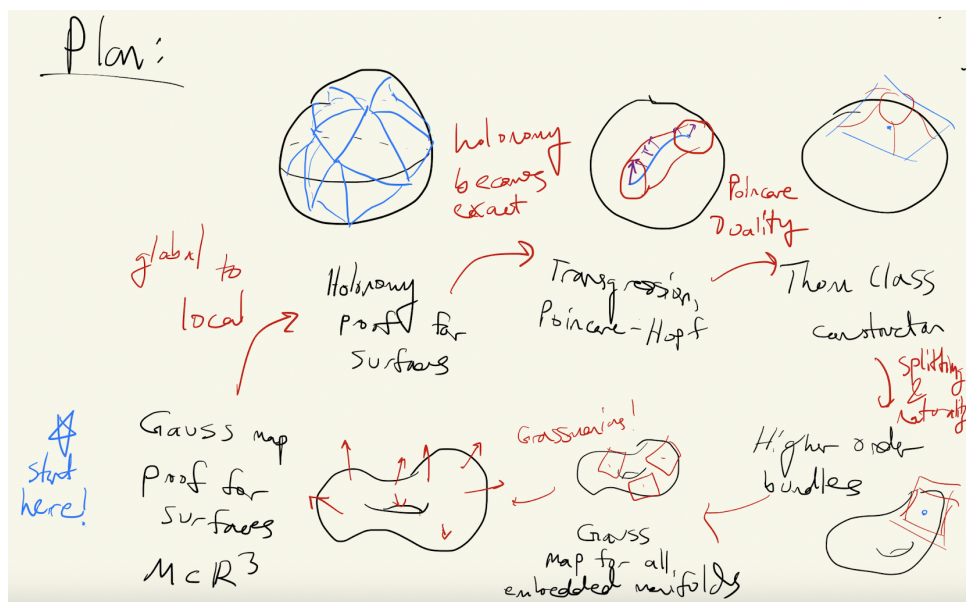 Plan:
holonomy
becomes
exact
Poincare
Duality
global to
local
Holonomy
proof for
surfaces
Transgression,
Poincare-Hopf
Thom Class
constructor
splitting
&
naturality
start
here!
Gauss map
proof for
surfaces
M⊂R³
Grassmannians!
Gauss
map for all
embedded manifolds
Higher order
bundles